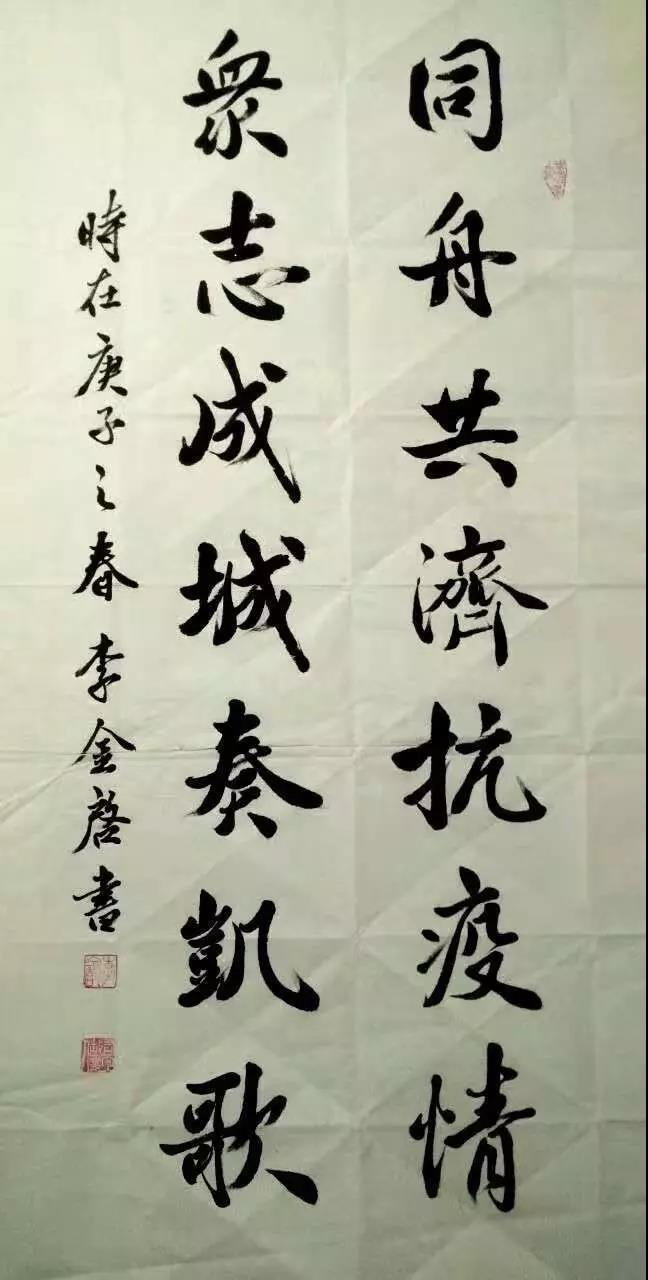 同舟共濟抗疫情
衆志成城奏凱歌
時在庚子之春 李金啓書